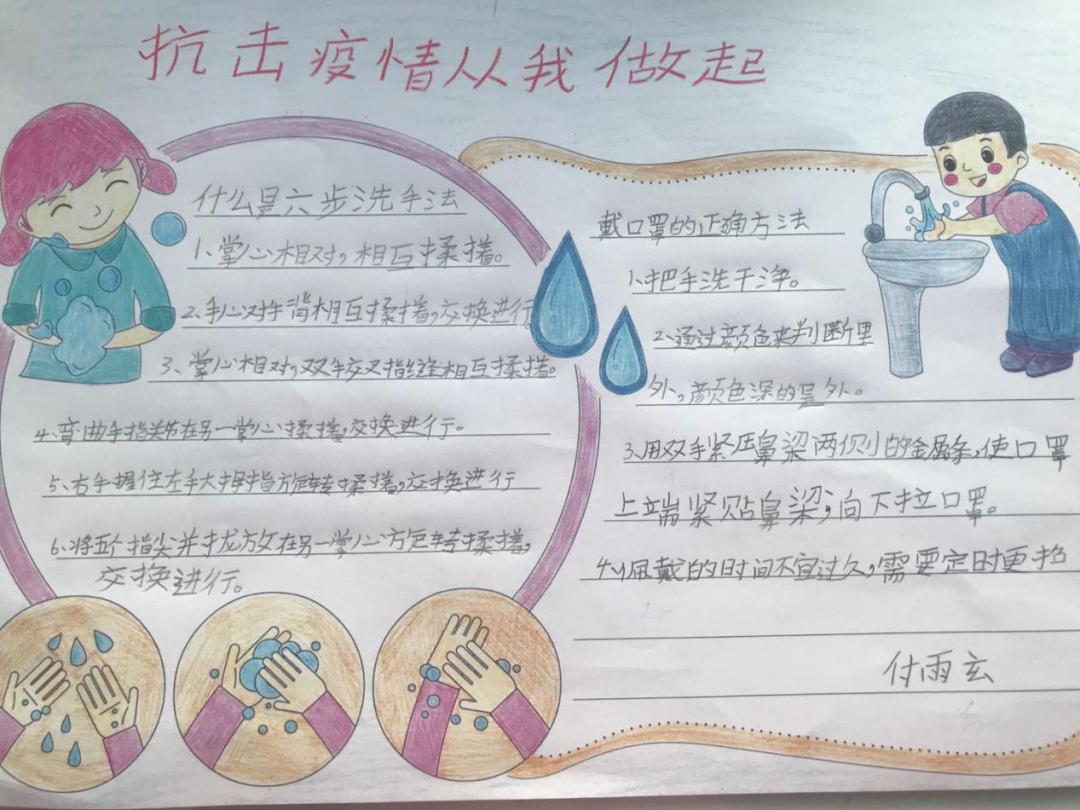 抗击疫情从我做起
什么是六步洗手法
1、掌心相对,相互揉搓。
2、手心对手背相互揉搓,交换进行
3、掌心相对,双手交叉指缝相互揉搓。
4、弯曲手指关节在另一掌心揉搓,交换进行。
5、右手握住左手大拇指旋转揉搓,交换进行
6、将五个指尖并拢放在另一掌心旋转揉搓,
交换进行。
戴口罩的正确方法
1、把手洗干净。
2、通过颜色来判断里
外,颜色深的是外。
3、用双手紧压鼻梁两侧的金属条,使口罩
上端紧贴鼻梁,向下拉口罩。
4、佩戴的时间不宜过久,需要定时更
付雨玄